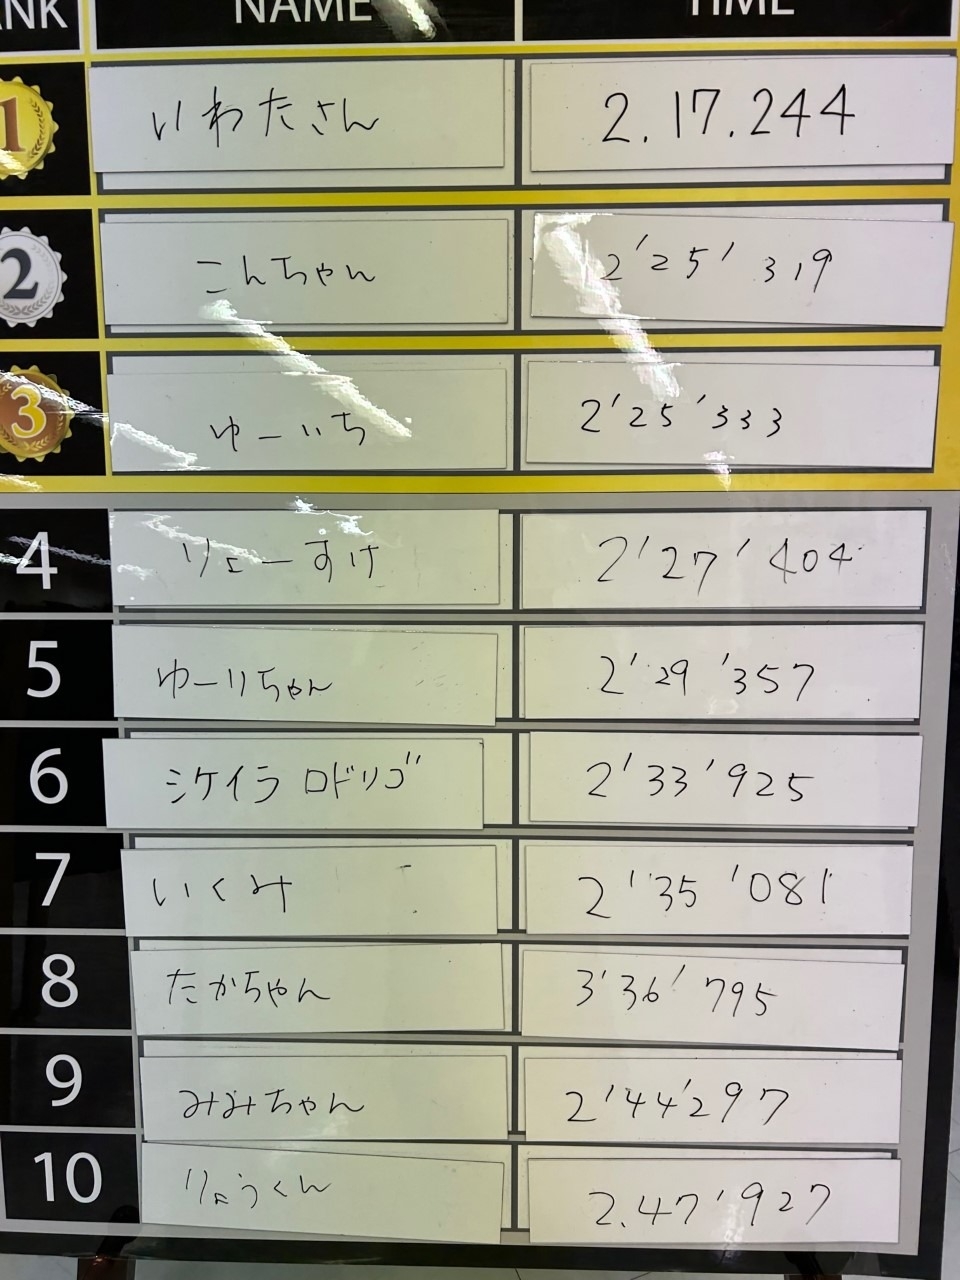 ANK NAME TIME
1 いわたさん 2.17.244
2 こんちゃん 2'25'319
3 ゆーいち 2'25'333
4 りょーすけ 2'27'404
5 ゆーりちゃん 2'29'357
6 シケイラ ロドリゴ 2'33'925
7 いくみ 2'35'081
8 たかちゃん 3'36'795
9 みみちゃん 2'44'297
10 りょうくん 2.47'927